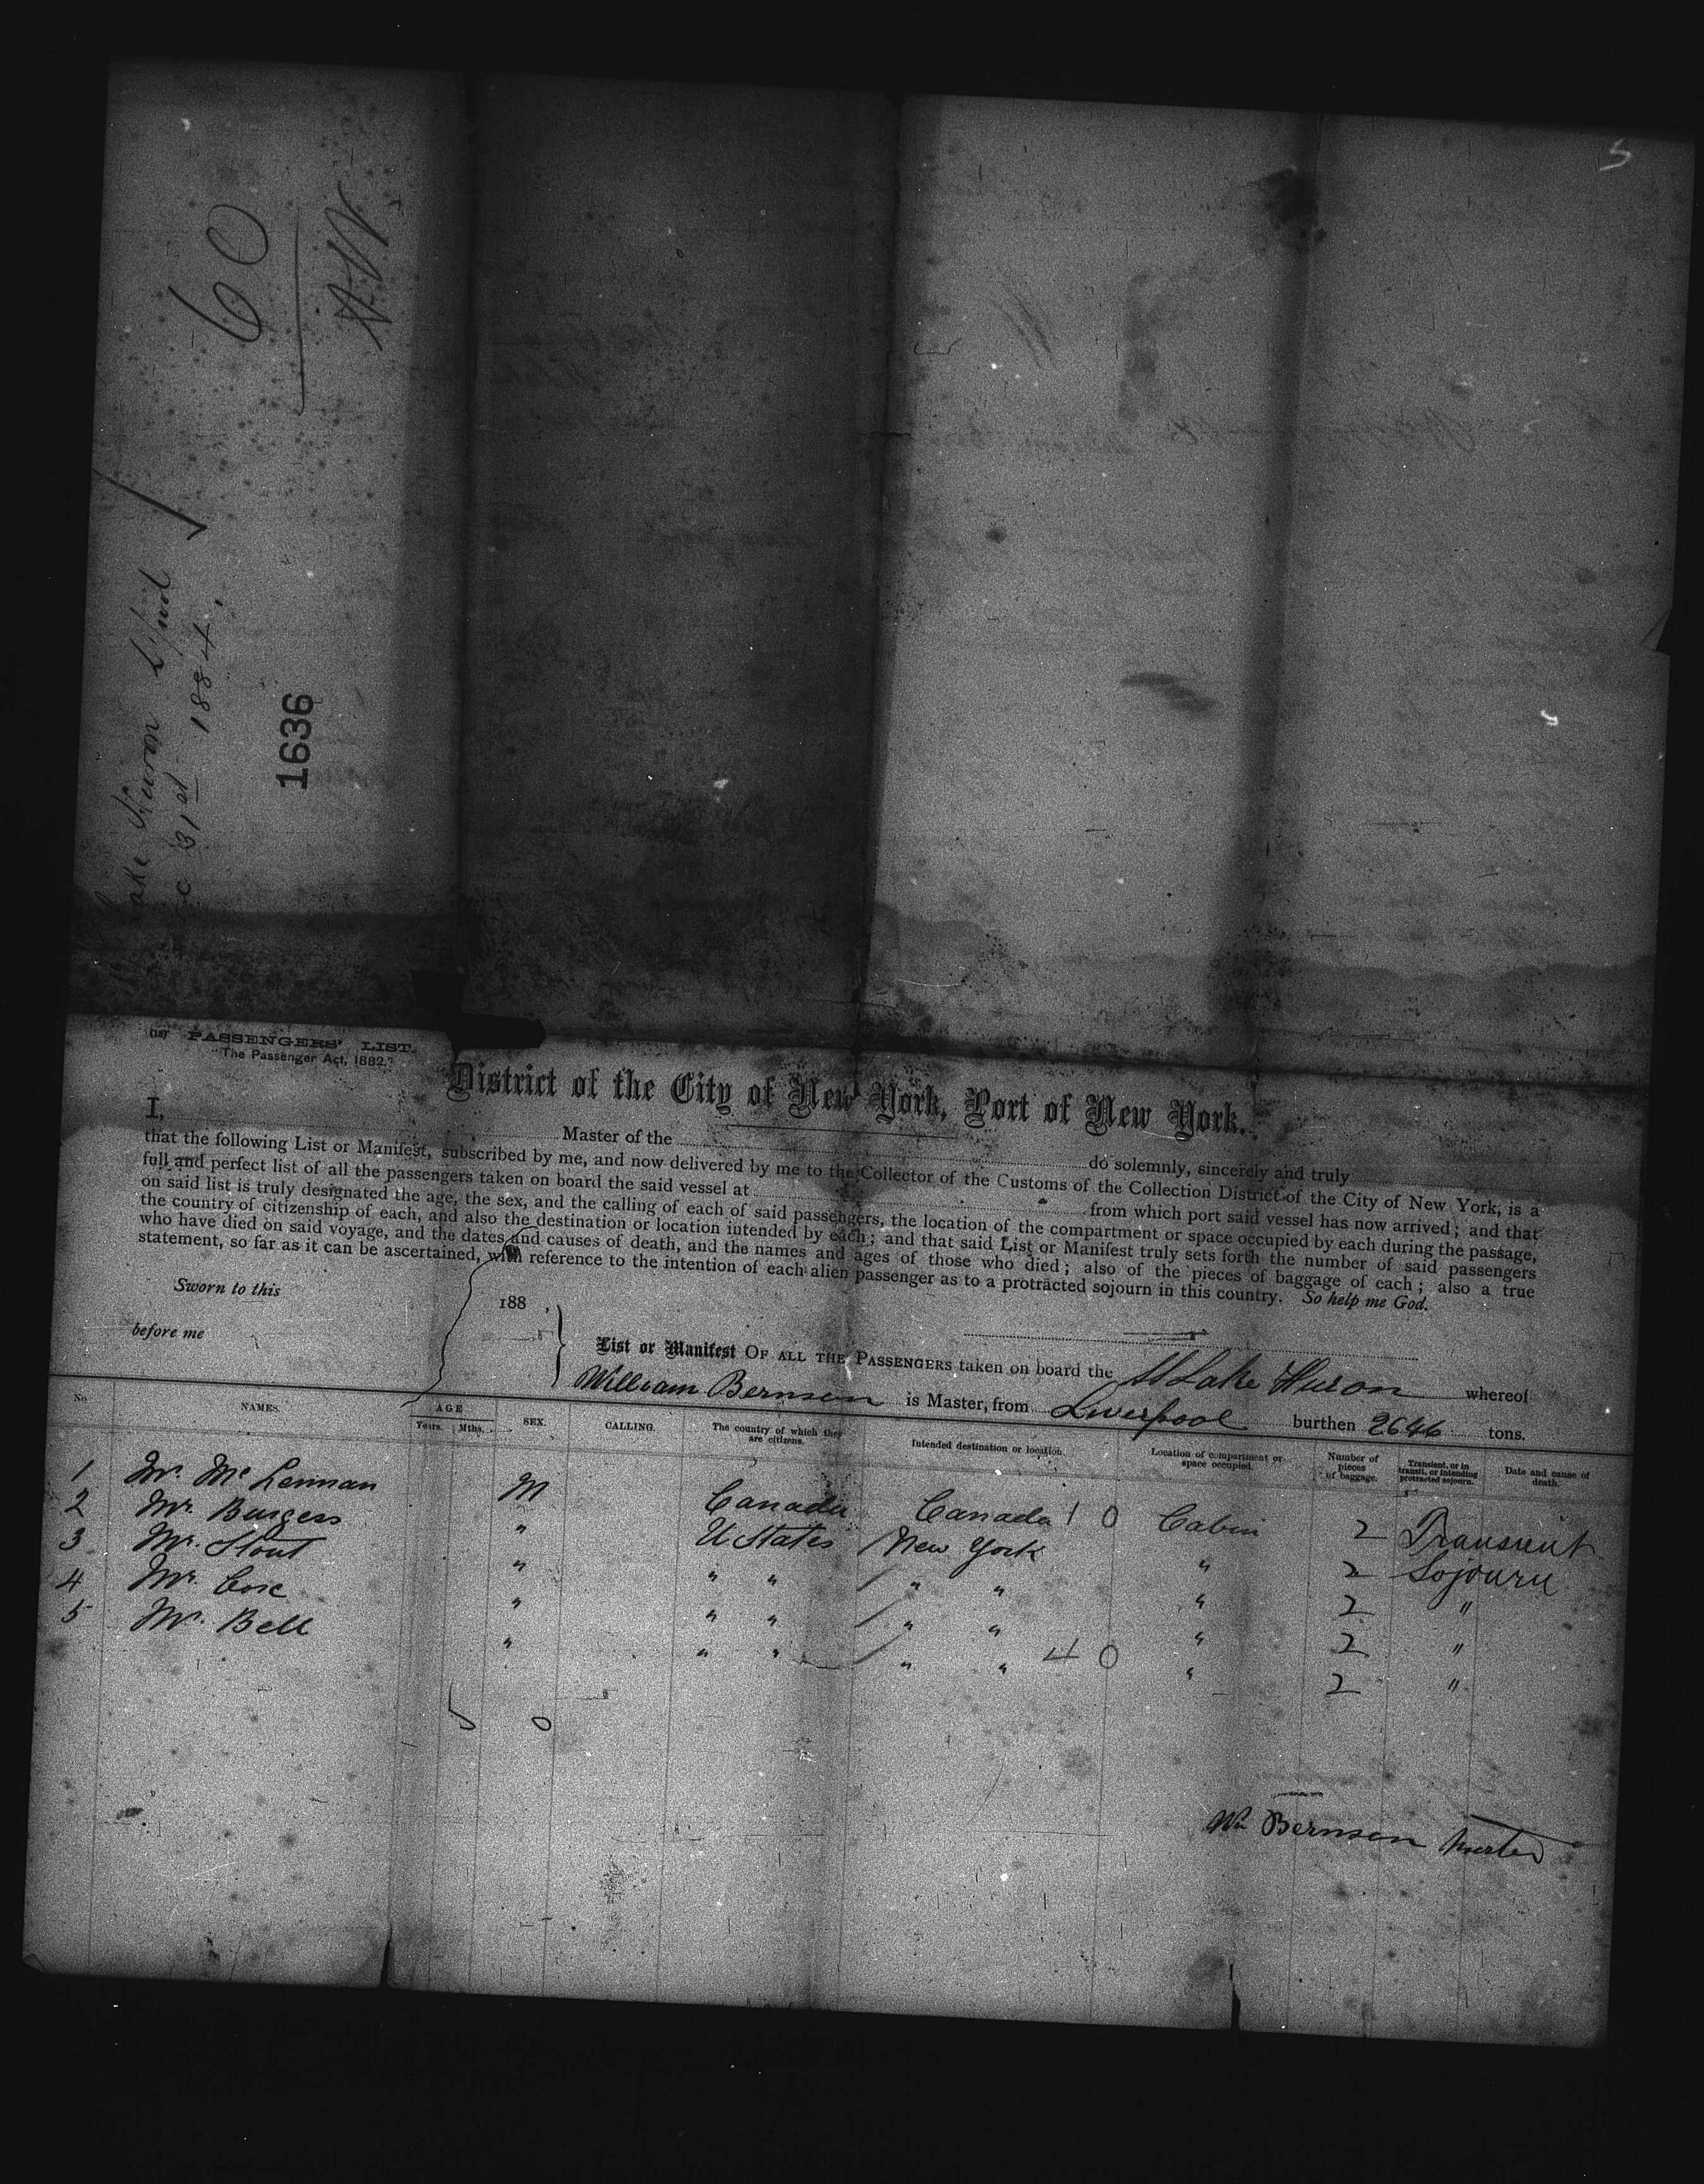 5
60
Lake Huron L'pool
c 31st 1884.
1636
(18) PASSENGERS' LIST.
"The Passenger Act, 1882."
District of the City of New York, Port of New York.
I, Master of the do solemnly, sincerely and truly
that the following List or Manifest, subscribed by me, and now delivered by me to the Collector of the Customs of the Collection District of the City of New York, is a
full and perfect list of all the passengers taken on board the said vessel at from which port said vessel has now arrived; and that
on said list is truly designated the age, the sex, and the calling of each of said passengers, the location of the compartment or space occupied by each during the passage,
the country of citizenship of each, and also the destination or location intended by each; and that said List or Manifest truly sets forth the number of said passengers
who have died on said voyage, and the dates and causes of death, and the names and ages of those who died; also of the pieces of baggage of each; also a true
statement, so far as it can be ascertained, with reference to the intention of each alien passenger as to a protracted sojourn in this country. So help me God.
Sworn to this 188 ,
before me
List or Manifest OF ALL THE PASSENGERS taken on board the SS Lake Huron whereof
William Bernson is Master, from Liverpool burthen 2646 tons.
No NAMES. AGE Years. Mths. SEX. CALLING. The country of which they are citizens. Intended destination or location. Location of compartment or space occupied. Number of pieces of baggage. Transient, or in transit, or intending protracted sojourn. Date and cause of death.
1 Mr. McLennan M Canada Canada 1 0 Cabin 2 Transient
2 Mr. Burgess " U States New York " 2 Sojourn
3 Mr. Stout " " " " " " 2 "
4 Mr. Cose " " " " " " 2 "
5 Mr. Bell " " " " " 4 0 " 2 "
5 0
Wm Bernson Master